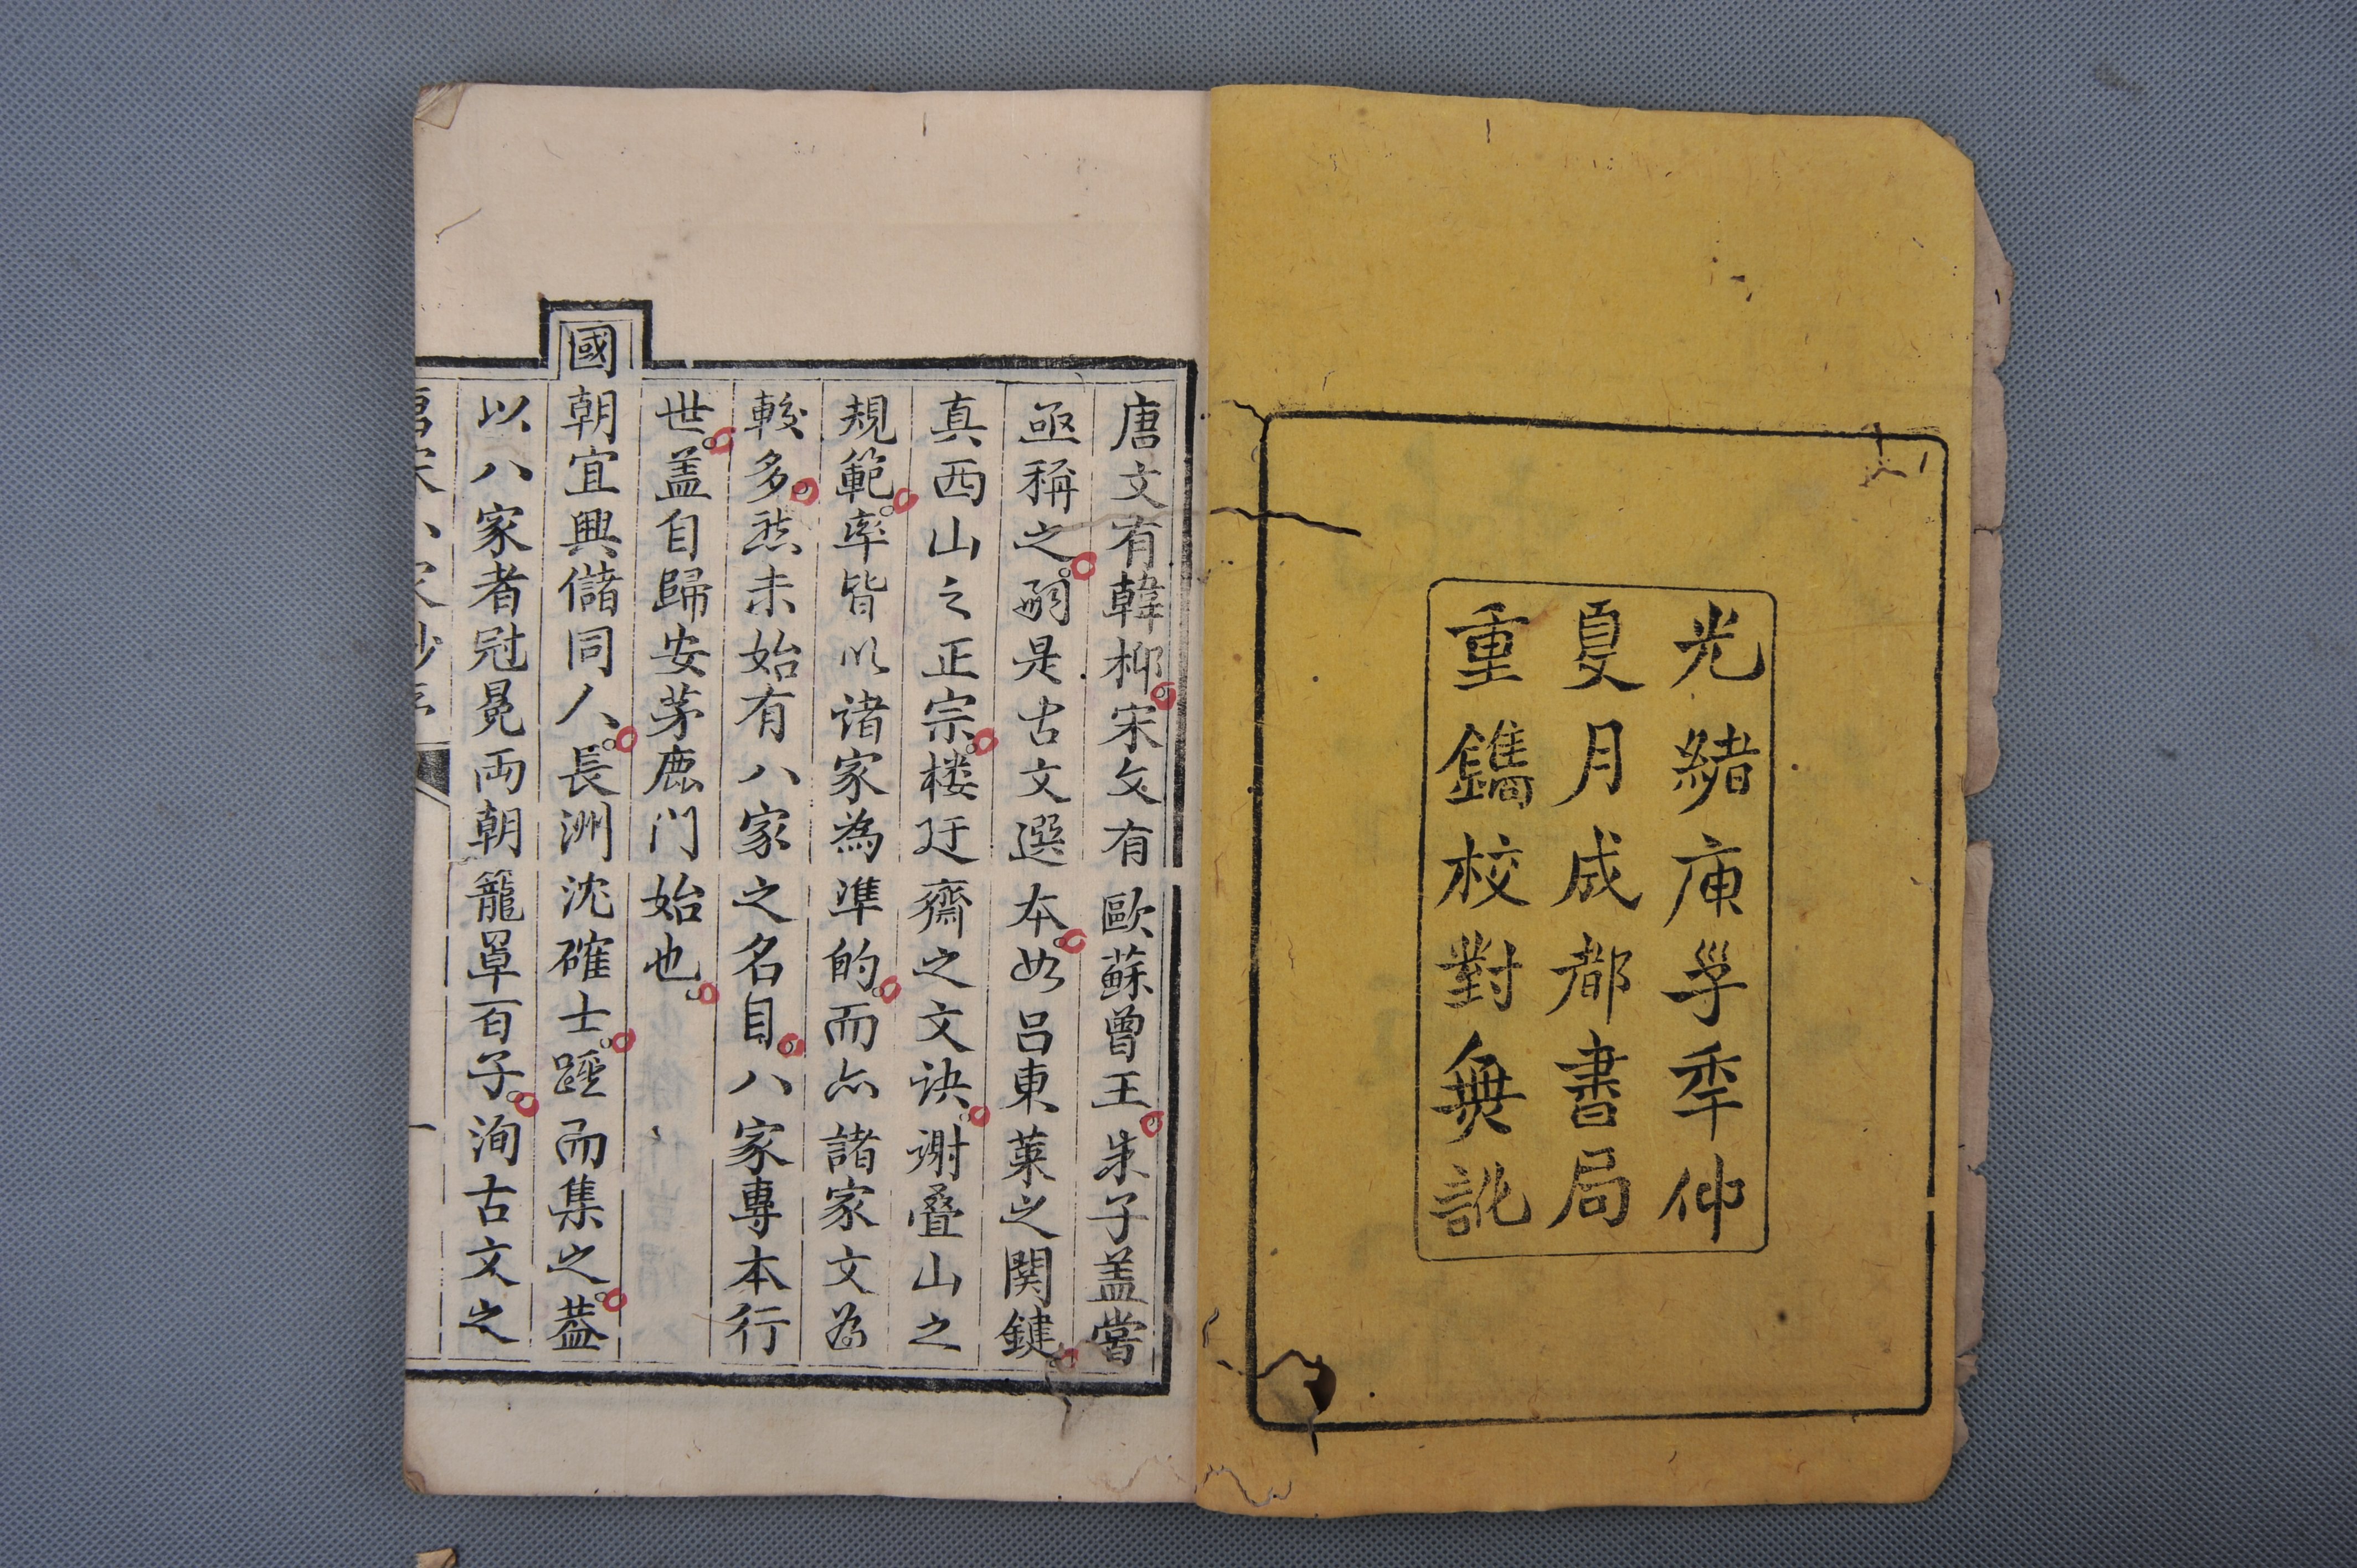 光緒庚寅秊仲
夏月成都書局
重鐫校對無訛
唐文有韓柳。宋文有歐蘇曾王。朱子盖嘗
亟稱之。嗣是古文選本。如吕東萊之関鍵。
真西山之正宗。楼迂齋之文诀。谢叠山之
規範。率皆以诸家為準的。而亦諸家文為
較多。然未始有八家之名目。八家專本行
世。盖自歸安茅鹿门始也。
國朝宜興儲同人。長洲沈確士。踵而集之。葢
以八家者冠冕両朝籠罩百子。洵古文之
唐宋八家鈔序
一